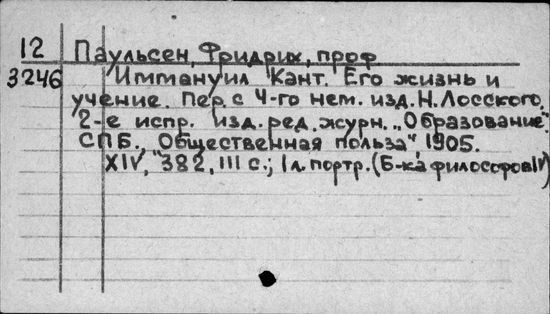 12 Паульсен, Фридрих, проф.
3246 Иммануил Кант. Его жизнь и
учение. Пер. с 4-го нем. изд. Н. Лосского.
2-е испр. изд. ред. журн. „Образование".
СПБ., „Общественная польза", 1905.
XIV, 382, III с.; 1 л. портр. (Б-ка философов IV)